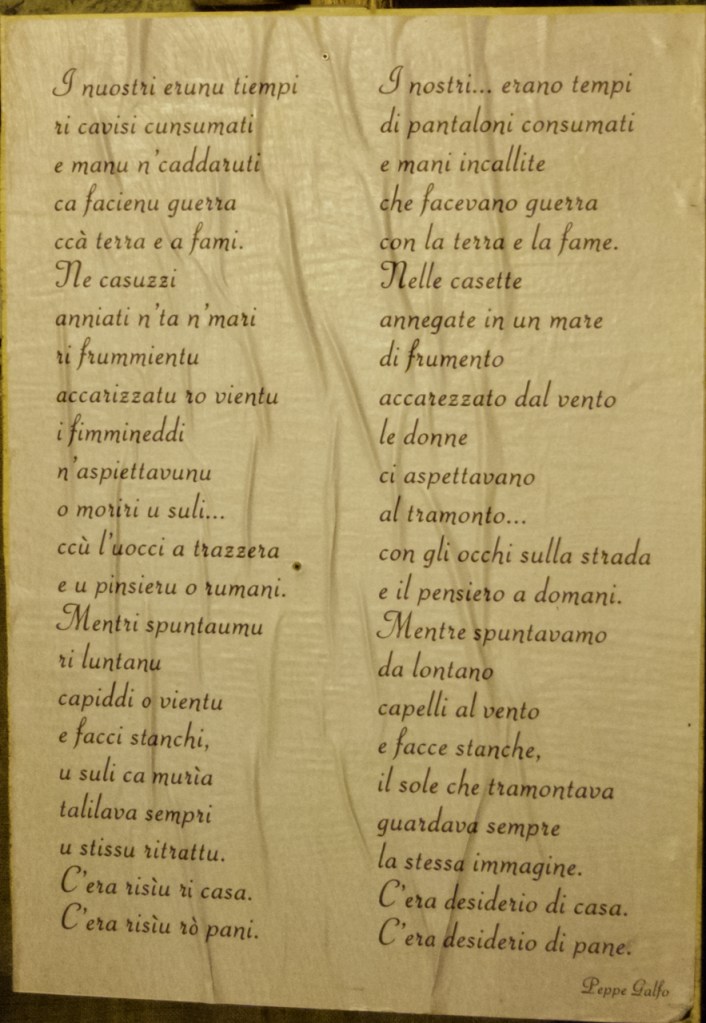 I nuostri erunu tiempi
ri cavisi cunsumati
e manu n'caddaruti
ca facienu guerra
ccà terra e a fami.
Ne casuzzi
anniati n'ta n'mari
ri frummientu
accarizzatu ro vientu
i fimmineddi
n'aspiettavunu
o moriri u suli...
ccù l'uocci a trazzera
e u pinsieru o rumani.
Mentri spuntaumu
ri luntanu
capiddi o vientu
e facci stanchi,
u suli ca murìa
talilava sempri
u stissu ritrattu.
C'era risìu ri casa.
C'era risìu rò pani.
I nostri... erano tempi
di pantaloni consumati
e mani incallite
che facevano guerra
con la terra e la fame.
Nelle casette
annegate in un mare
di frumento
accarezzato dal vento
le donne
ci aspettavano
al tramonto...
con gli occhi sulla strada
e il pensiero a domani.
Mentre spuntavamo
da lontano
capelli al vento
e facce stanche,
il sole che tramontava
guardava sempre
la stessa immagine.
C'era desiderio di casa.
C'era desiderio di pane.
Peppe Galfo